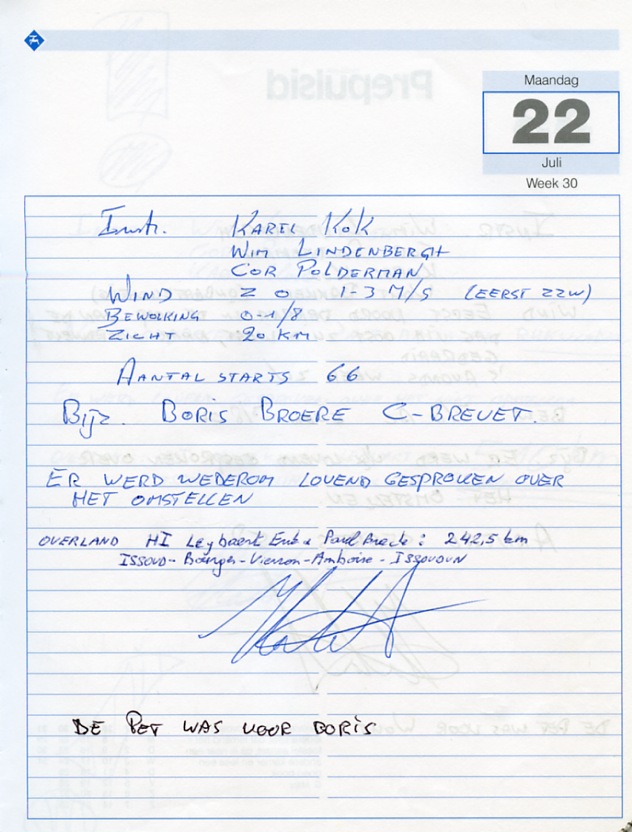 Maandag
22
Juli
Week 30
Instr. KAREL KOK
WIM LINDENBERGH
COR POLDERMAN
WIND Z O 1-3 M/S (EERST ZZW)
BEWOLKING 0-1/8
ZICHT 20 KM
AANTAL STARTS 66
Bijz. BORIS BROERE C-BREVET.
ER WERD WEDEROM LOVEND GESPROKEN OVER
HET OMSTELLEN
OVERLAND HI Leybaert & Paul : 242,5 km
ISSOUD - Bourges - Vierzon - Amboise - ISSOUDUN
DE PET WAS VOOR BORIS